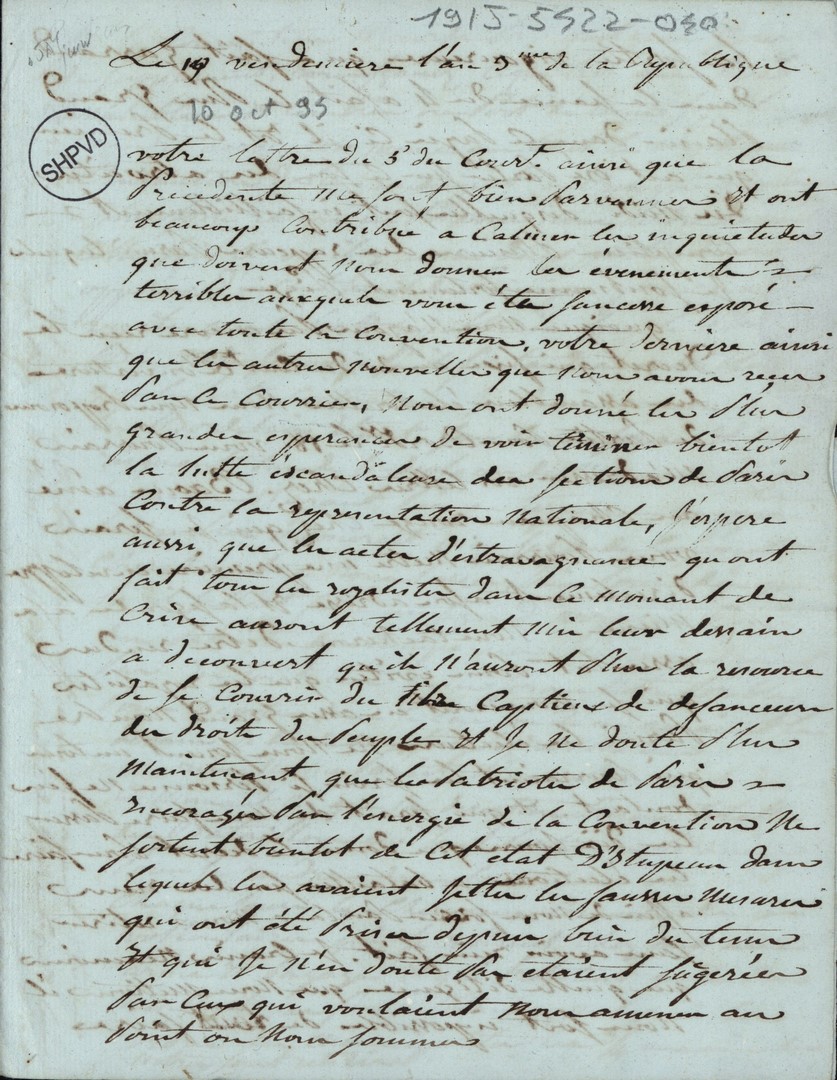 1915-5522-090
Le 19 vendemiere l'an 3me de la Republique
10 oct 95
SHPVD
votre lettre du 5 du Court. ainsi que la
Precedente me sont bien Parvenues Et ont
beaucoup Contribué a Calmer les inquietudes
que doivent nous donner les évenements
terribles auxquels vous étes sancesse exposé
avec toute la Convention, votre derniere ainsi
que les autres nouvelles que nous avons reçu
Par ce Courrier, Nous ont donné les Plus
grandes esperances de voir terminer bientot
la lutte éscandaleuse des sections de Paris
Contre la representation Nationale, J'espere
aussi que les actes d'extravagnance qu'ont
fait tous les royalistes dans ce moment de
Crise auront tellement mis leurs dessain
a decouvert qu'ils n'auront Plus la resource
de se Couvrir du titre Captieux de defanceurs
du droits du Peuple Et Je ne doute Plus
maintenant que les Patriotes de Paris
encoragés Par l'energie de la Convention Ne
sortent bientot de cet etat D'Stupeur dans
lequel les avaient Jetter les fausses Mesures
qui ont été Prises depuis bien du tems
Et qui Je n'en doute Pas etaient sugerées
Par Ceux qui voulaient nous amener au
Point ou nous sommes